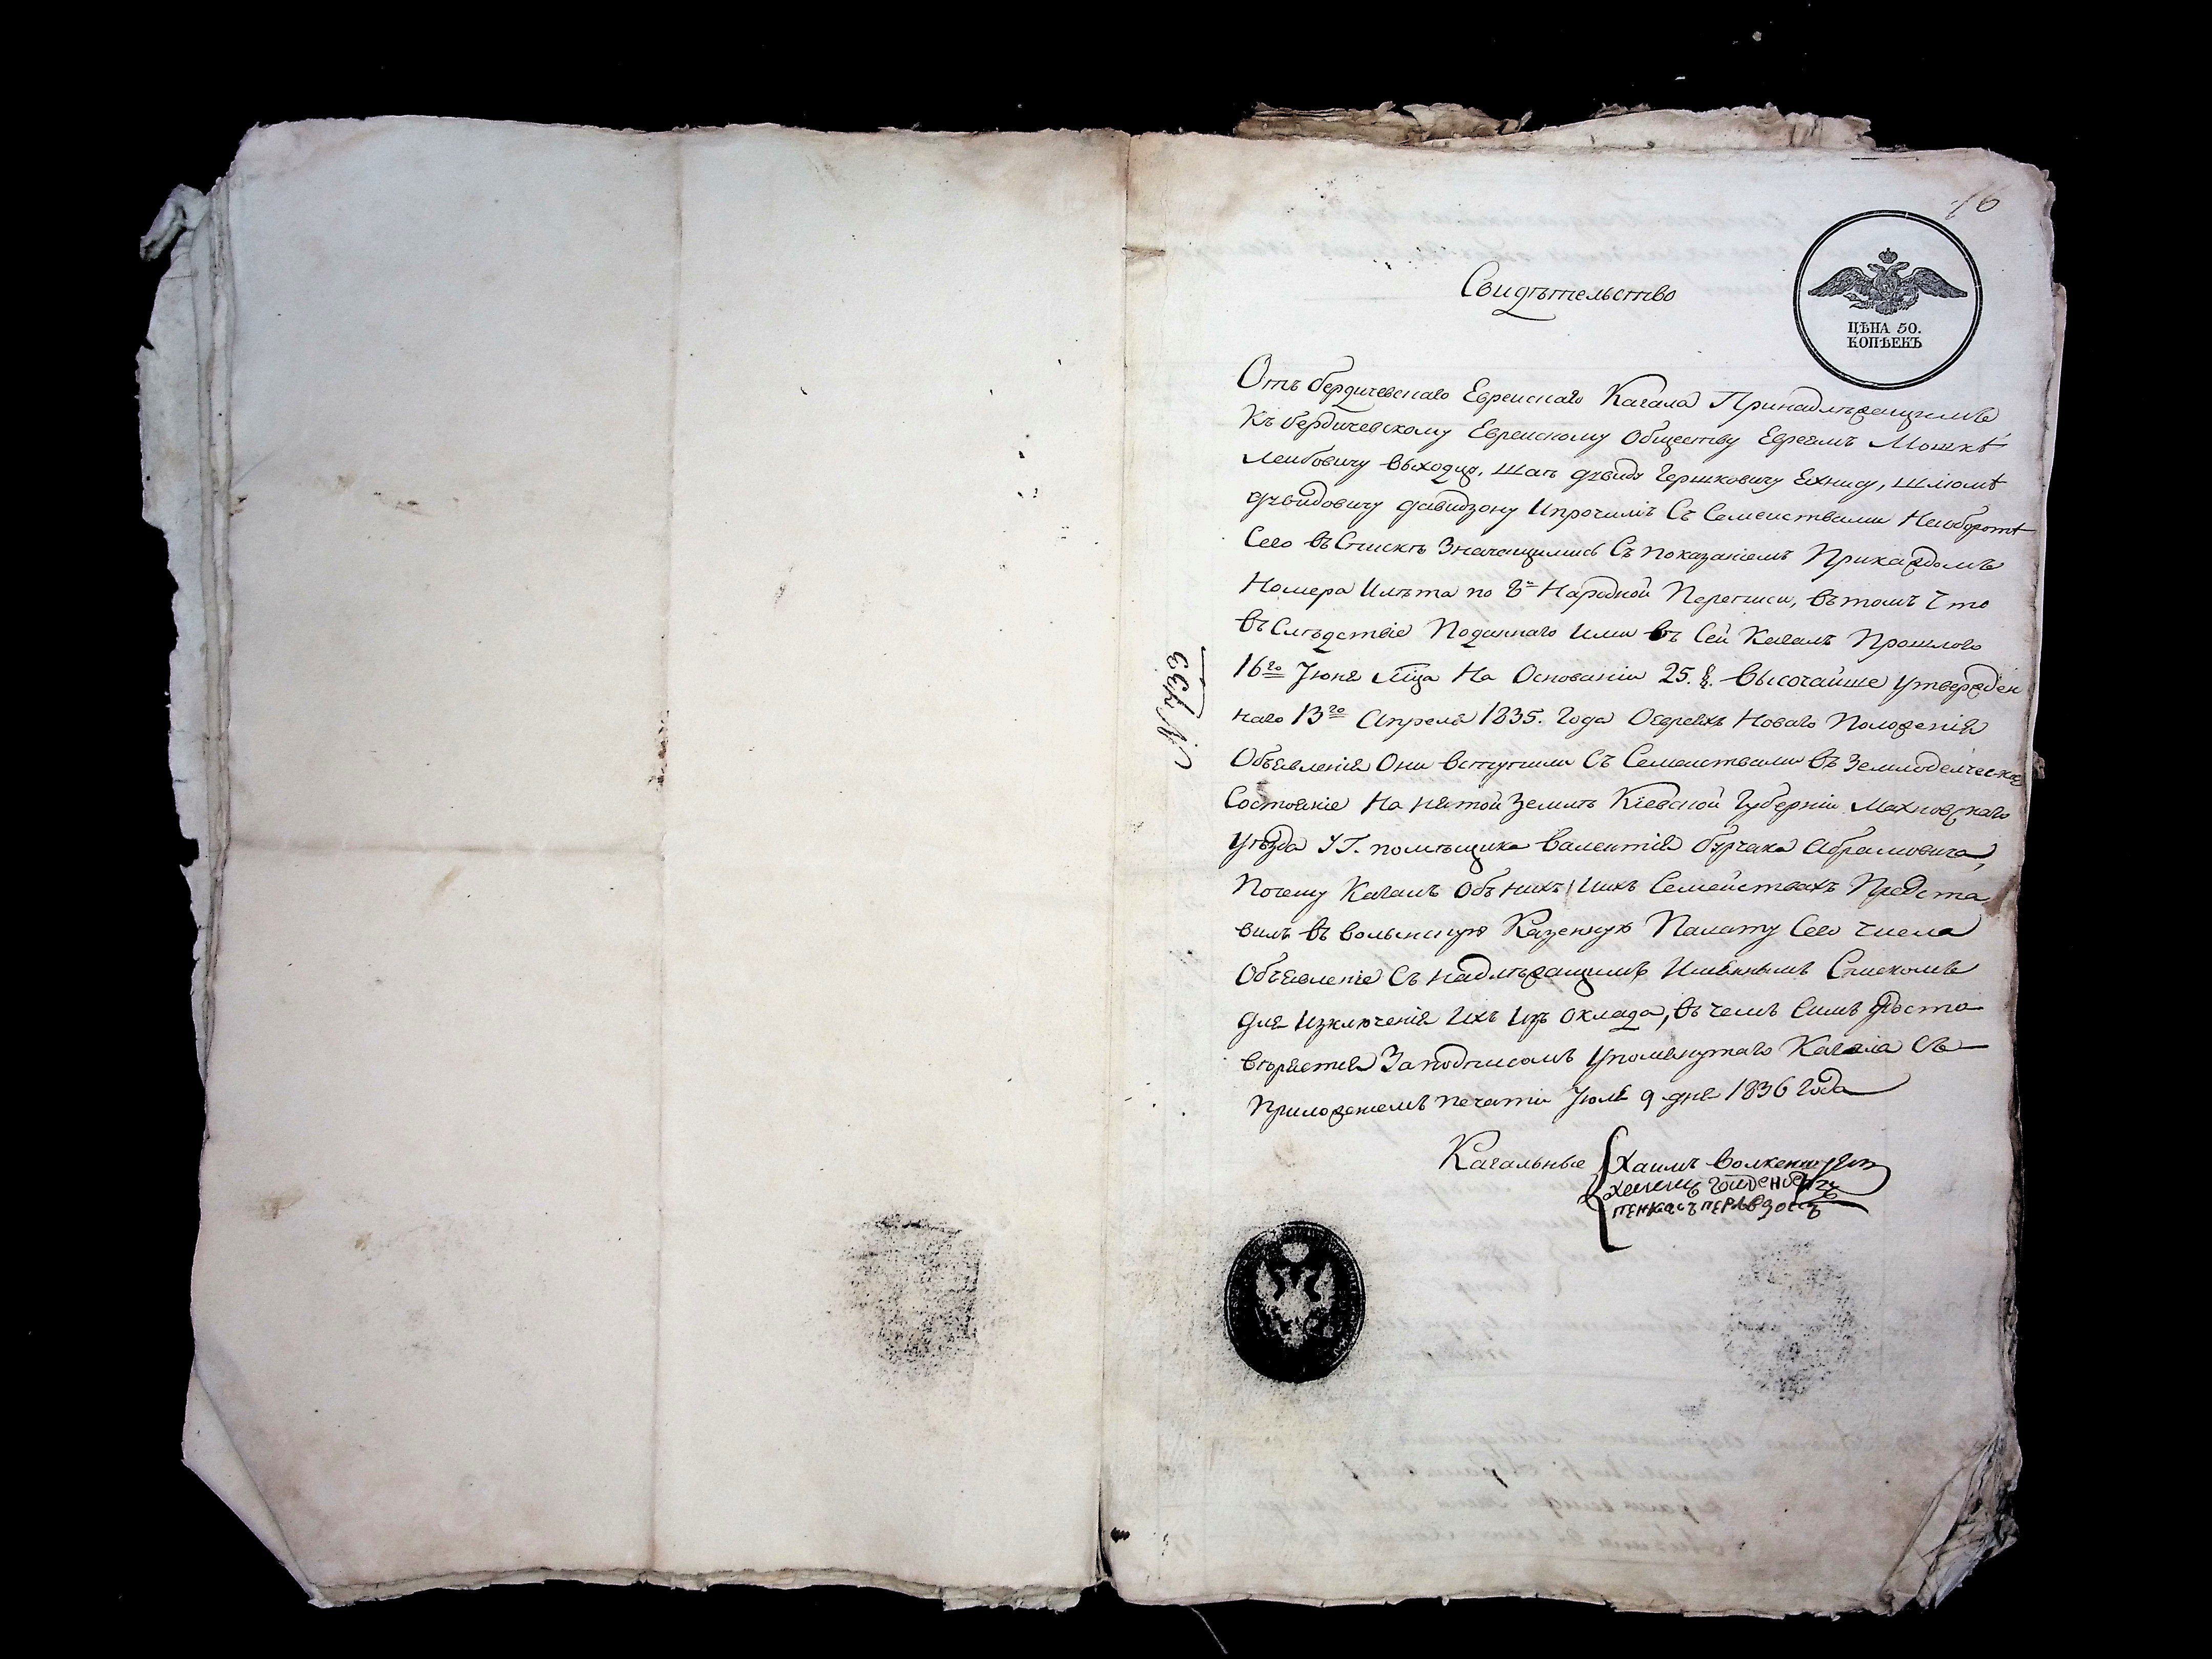 16
Свидѣтельство
ЦѢНА 50.
КОПѢЕКЪ
Отъ бердичевскаго Евреискаго Кагала Принадлѣжащимъ
Къ бердичевскому Евреискому Обществу Евреямъ Мошкѣ
Леибовичу Выходцу, Гершковичу Шлюмѣ
давидзону Ипрочимъ Съ Семеиствами Наоборотѣ
Сего въ Спискѣ Значащимись Съ показаніемъ Прикаждомъ
Номера Илѣта по 8й Народной Переписи, въ томъ Что
въ Слѣдствіе Поданнаго Ими въ Сей Кагалъ Прошлого
16го Іюня Мца На Основаніи 25. §. Высочайше Утвержден
наго 13го Апреля 1835. года Оевреяхъ Новаго Положенія
Объявленія Они вступили Съ Семеиствами въ Земледелческое
Состояніе На нятой Землѣ Кіевской Губерніи Махновскаго
Уѣзда УГ. помѣщика Валентія бурчака Абрамовича,
Почему Кагалъ Объ нихъ Иихъ Семействахъ Предста
вилъ въ волынскую Казенную Палату Сего числа
Объявленіе Съ надлѣжащимъ Имяннымъ Спискомъ
Для Изключенія Ихъ Изъ Оклада, въ чемъ Симъ Досто
вѣряется Заподписомъ Упомянутаго Кагала Съ
Приложеніемъ печати Іюля 9 дня 1836 года
Кагальные Хаимъ
пенкасъ
№433